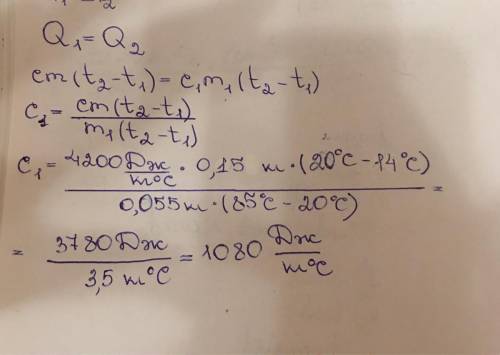 Q₁ = Q₂
cm(t₂-t₁) = c₁m₁(t₂-t₁)
c₁ = cm(t₂-t₁) / m₁(t₂-t₁)
c₁ = 4200 Дж/кг°С · 0,15 кг · (20°С - 14°С) / 0,055 кг · (85°С - 20°С) =
= 3780 Дж / 3,5 кг°С = 1080 Дж/кг°С